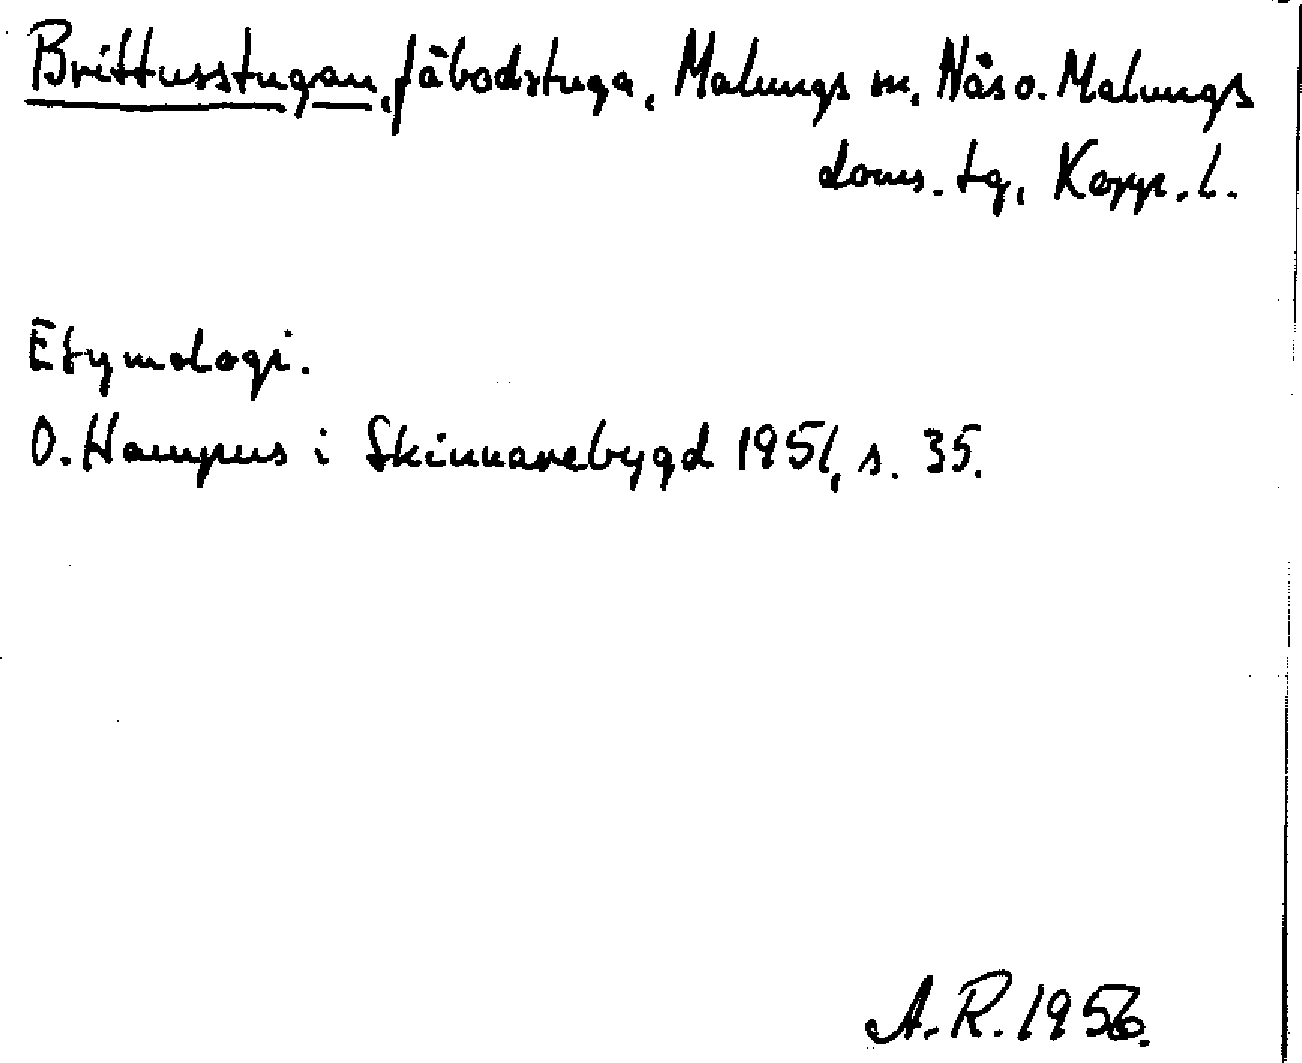 Brittusstugan, fäbodstuga, Malungs sn, Näs o. Malungs
doms. tg, Kopp. l.
Etymologi.
O. Hampus i Skinnarebygd 1951, s. 35.
A. R. 1956.